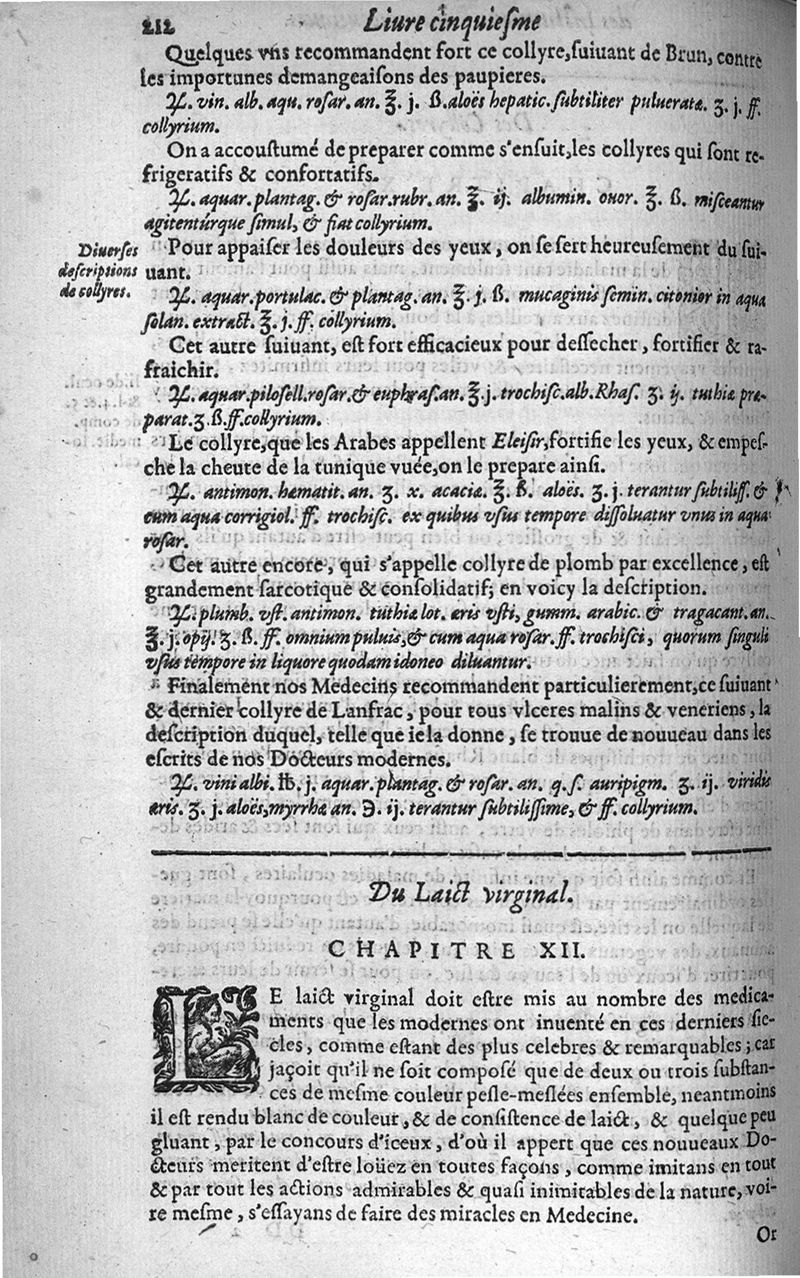 212 Liure cinquieſme
Quelques vns recommandent fort ce collyre, ſuiuant de Brun, contre
les importunes demangeaiſons des paupieres.
♃. vin. alb. aqu. roſar. an. ℥. j. ß. aloës hepatic. ſubtiliter puluerata. ʒ. j. ff.
collyrium.
On a accouſtumé de preparer comme s'enſuit, les collyres qui ſont re-
frigeratifs & confortatifs.
♃. aquar. plantag. & roſar. rubr. an. ℥. ij. albumin. ouor. ℥. ß. miſceantur
agitentúrque ſimul, & fiat collyrium.
Diuerſes
deſcriptions
de collyres.
Pour appaiſer les douleurs des yeux, on ſe ſert heureuſement du ſui-
uant.
♃. aquar. portulac. & plantag. an. ℥. j. ß. mucaginis ſemin. citonior in aqua
ſolan. extract. ℥. j. ff. collyrium.
Cet autre ſuiuant, eſt fort efficacieux pour deſſecher, fortifier & ra-
fraichir.
♃. aquar. piloſell. roſar. & euphraſ. an. ℥. j. trochiſc. alb. Rhaſ. ʒ. ij. tuthiæ præ-
parat. ʒ. ß. ff. collyrium.
Le collyre, que les Arabes appellent Eleiſir, fortifie les yeux, & empeſ-
che la cheute de la tunique vuée, on le prepare ainſi.
♃. antimon. hæmatit. an. ʒ. x. acacia. ℥. ß. aloës. ʒ. j. terantur ſubtiliſſ. &
cum aqua corrigiol. ff. trochiſc. ex quibus vſus tempore diſſoluatur vnus in aqua
roſar.
Cet autre encore, qui s'appelle collyre de plomb par excellence, eſt
grandement ſarcotique & conſolidatif; en voicy la deſcription.
♃. plumb. vſt. antimon. tuthiæ lot. æris vſti, gumm. arabic. & tragacant. an.
℥. j. opij. ʒ. ß. ff. omnium puluis, & cum aqua roſar. ff. trochiſci, quorum ſinguli
vſus tempore in liquore quodam idoneo diluantur.
Finalement nos Medecins recommandent particulierement, ce ſuiuant
& dernier collyre de Lanfrac, pour tous vlceres malins & veneriens, la
deſcription duquel, telle que ie la donne, ſe trouue de nouueau dans les
eſcrits de nos Docteurs modernes.
♃. vini albi. ℔. j. aquar. plantag. & roſar. an. q. ſ. auripigm. ʒ. ij. viridis
æris. ʒ. j. aloës, myrrhæ an. ℈. ij. terantur ſubtiliſſime, & ff. collyrium.
Du Laict virginal.
CHAPITRE XII.
LE laict virginal doit eſtre mis au nombre des medica-
ments que les modernes ont inuenté en ces derniers ſie-
cles, comme eſtant des plus celebres & remarquables; car
jaçoit qu'il ne ſoit compoſé que de deux ou trois ſubſtan-
ces de meſme couleur peſle-meſlées enſemble, neantmoins
il eſt rendu blanc de couleur, & de conſiſtence de laict, & quelque peu
gluant, par le concours d'iceux, d'où il appert que ces nouueaux Do-
cteurs meritent d'eſtre loüez en toutes façons, comme imitans en tout
& par tout les actions admirables & quaſi inimitables de la nature, voi-
re meſme, s'eſſayans de faire des miracles en Medecine.
Or